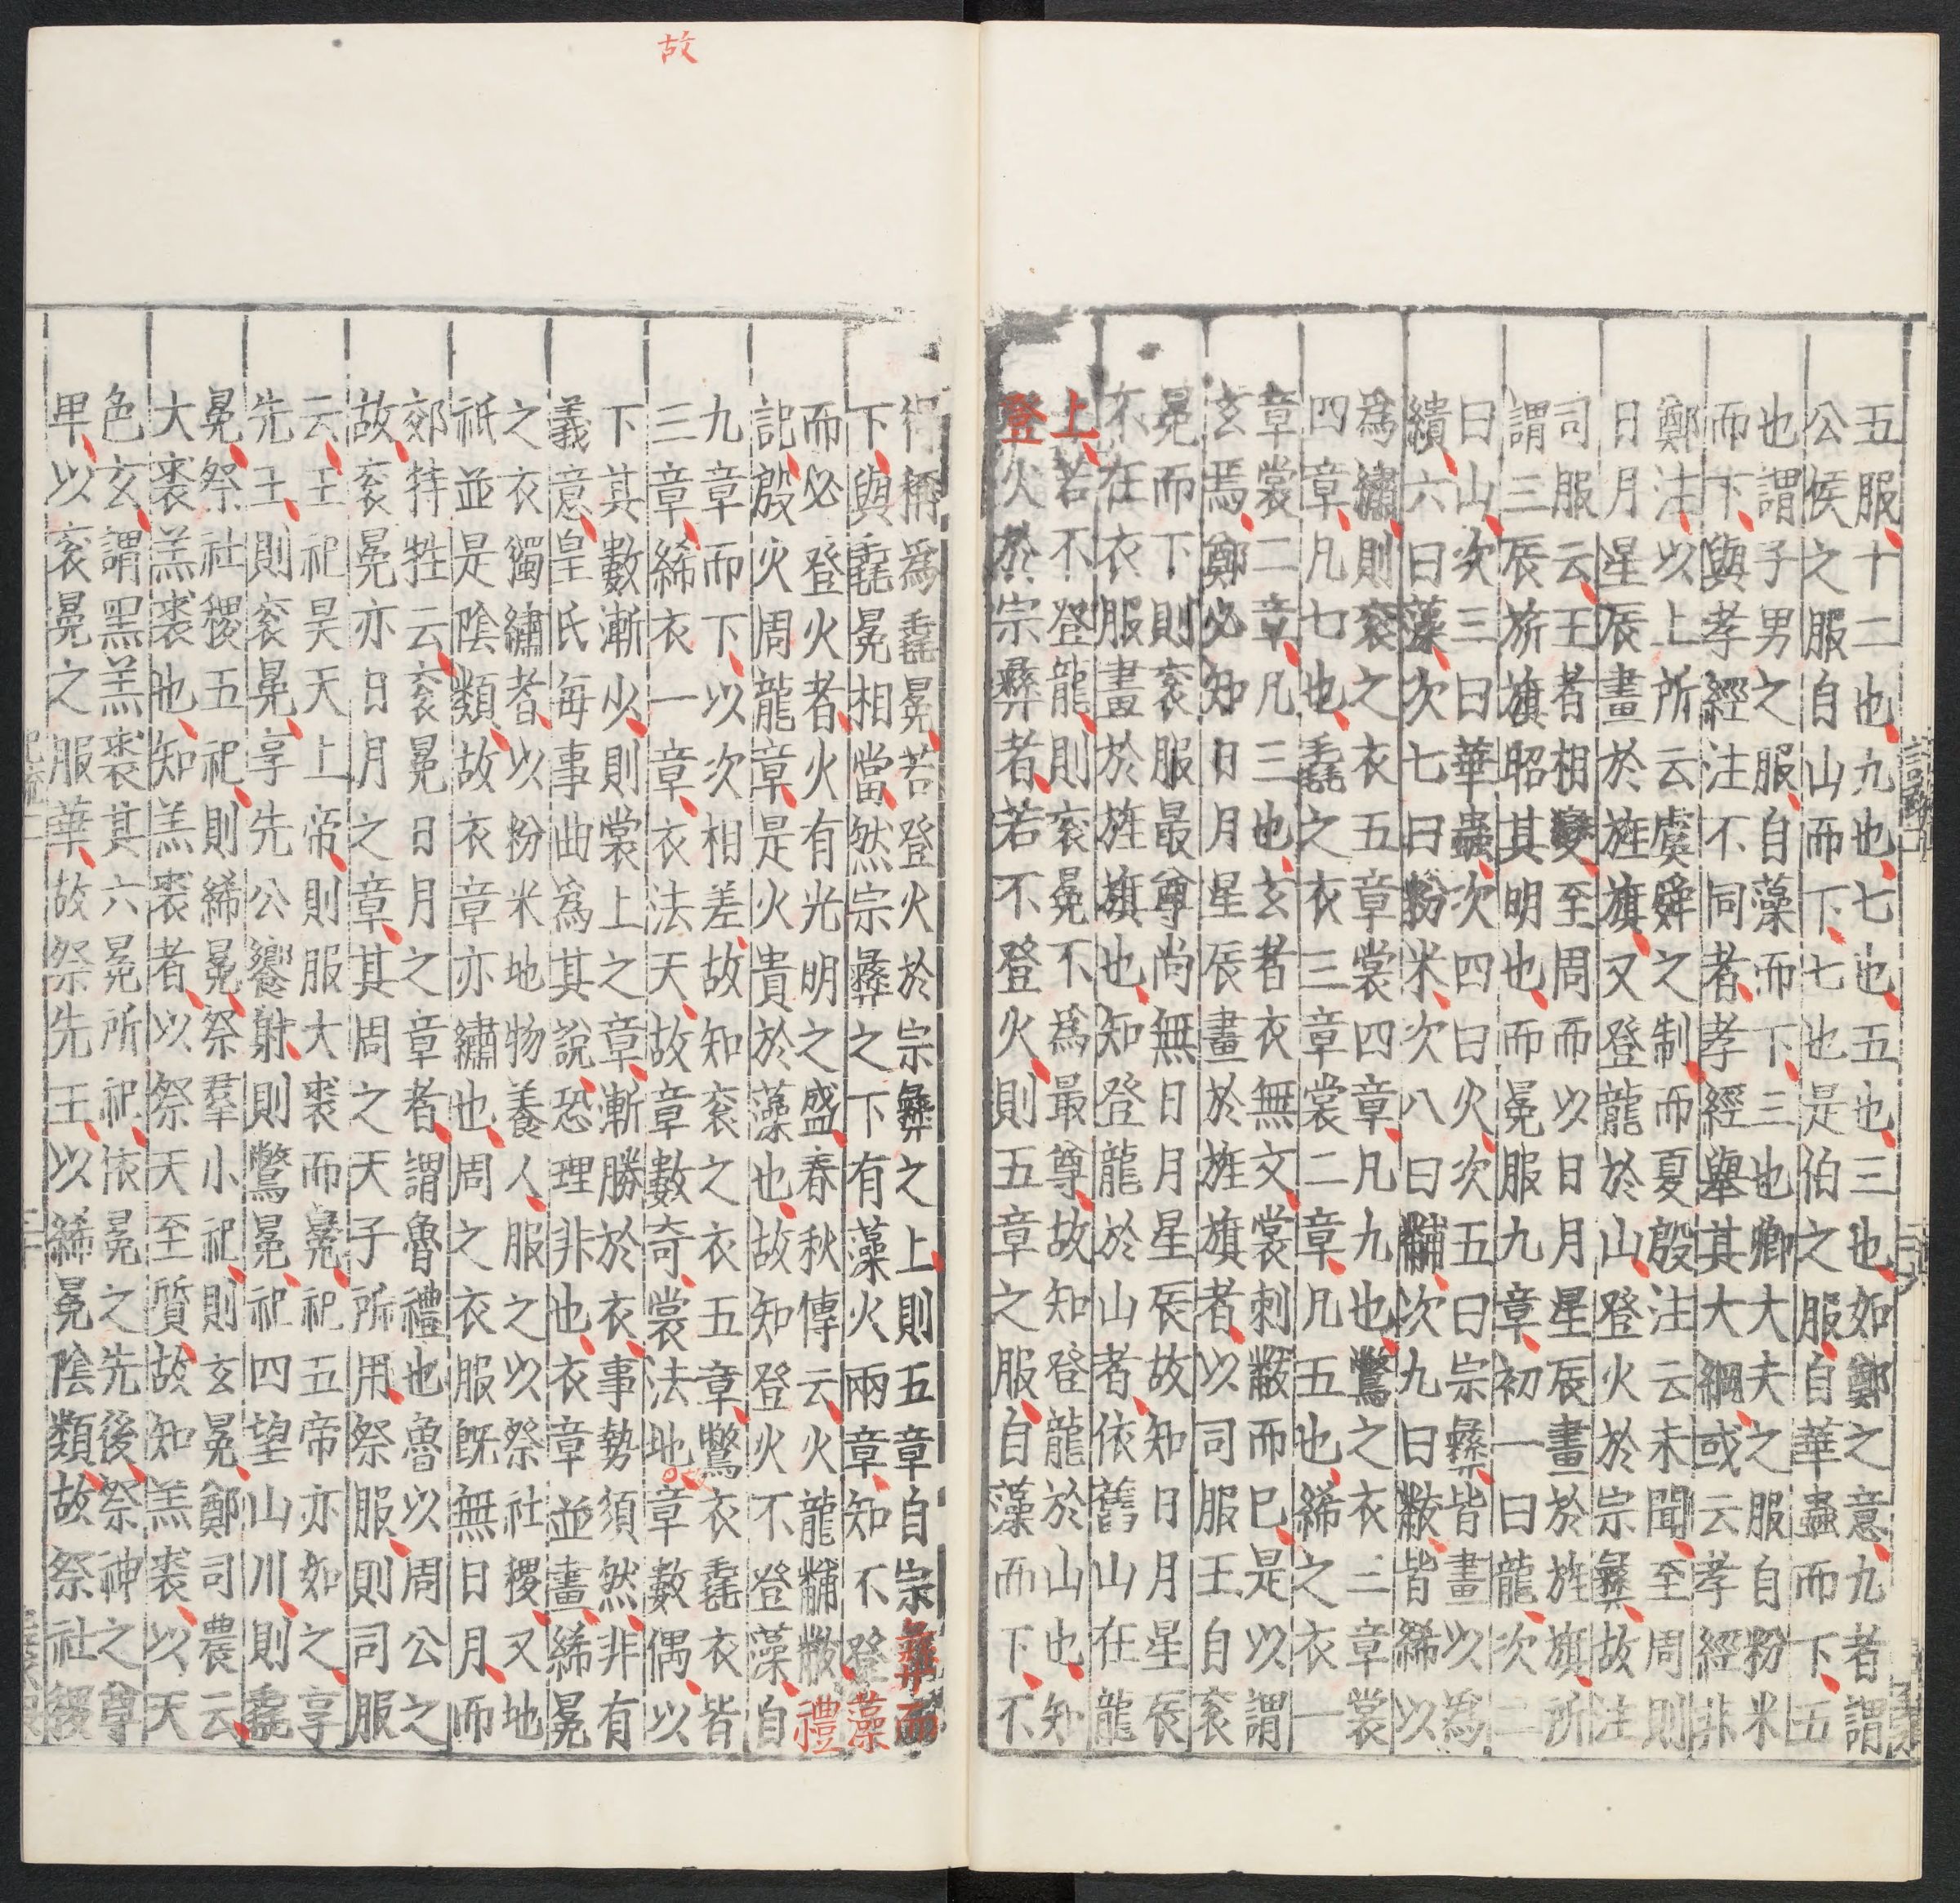 五服十二也九也七也五也三也如鄭之意九者謂
公侯之服自山而下七也是伯之服自華蟲而下五
也謂子男之服自藻而下三也卿大夫之服自粉米
而下與孝經注不同者孝經舉其大綱或云孝經非
鄭注以上所云虞舜之制而夏殷注云未聞至周則
日月星辰畫於旌旗又登龍於山登火於宗彝故注
司服云王者相變至周而以日月星辰畫於旌旗所
謂三辰旂旗昭其明也而冕服九章初一曰龍次二
曰山次三曰華蟲次四曰火次五曰宗彝皆畫以為
繢六曰藻次七曰粉米次八曰黼次九曰黻皆絺以
為繡則衮之衣五章裳四章凡九也鷩之衣三章裳
四章凡七也毳之衣三章裳二章凡五也絺之衣一
章裳二章凡三也玄者衣無文裳刺黻而已是以謂
玄焉鄭必知日月星辰畫於旌旗者以司服王自衮
冕而下則衮服最尊尚無日月星辰故知日月星辰
不在衣服畫於旌旗也知登龍於山者依舊山在龍
上若不登龍則衮冕不為最尊故知登龍於山也知
登火於宗彝者若不登火則五章之服自藻而下不
得稱為毳冕若登火於宗彝之上則五章自宗彝而
下與毳冕相當然宗彝之下有藻火兩章知不登藻
而必登火者火有光明之盛春秋傳云火龍黼黻禮
記殷火周龍章是火貴於藻也故知登火不登藻自
九章而下以次相差故知衮之衣五章鷩衣毳衣皆
三章絺衣一章衣法天故章數奇裳法地章數偶以
下其數漸少則裳上之章漸勝於衣事勢須然非有
義意皇氏每事曲為其說恐理非也衣章並畫絺冕
之衣獨繡者以粉米地物養人服之以祭社稷又地
祇並是陰類故衣章亦繡也周之衣服既無日月而
郊特牲云衮冕日月之章者謂魯禮也魯以周公之
故衮冕亦日月之章其周之天子所用祭服則司服
云王祀昊天上帝則服大裘而冕祀五帝亦如之享
先王則衮冕享先公饗射則鷩冕祀四望山川則毳
冕祭社稷五祀則絺冕祭羣小祀則玄冕鄭司農云
大裘羔裘也知羔裘者以祭天至質故知羔裘以天
色玄謂黑羔裘其六冕所祀依冕之先後祭神之尊
卑以衮冕之服華故祭先王以絺冕陰類故祭社稷
故